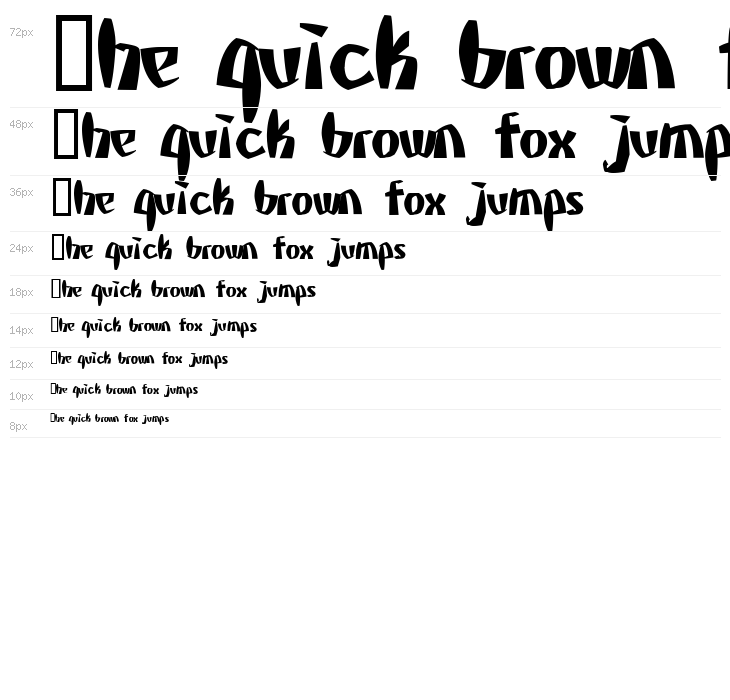 72px ▯he quick brown
48px ▯he quick brown fox jump
36px ▯he quick brown fox jumps
24px ▯he quick brown fox jumps
18px ▯he quick brown fox jumps
14px ▯he quick brown fox jumps
12px ▯he quick brown fox jumps
10px ▯he quick brown fox jumps
8px ▯he quick brown fox jumps